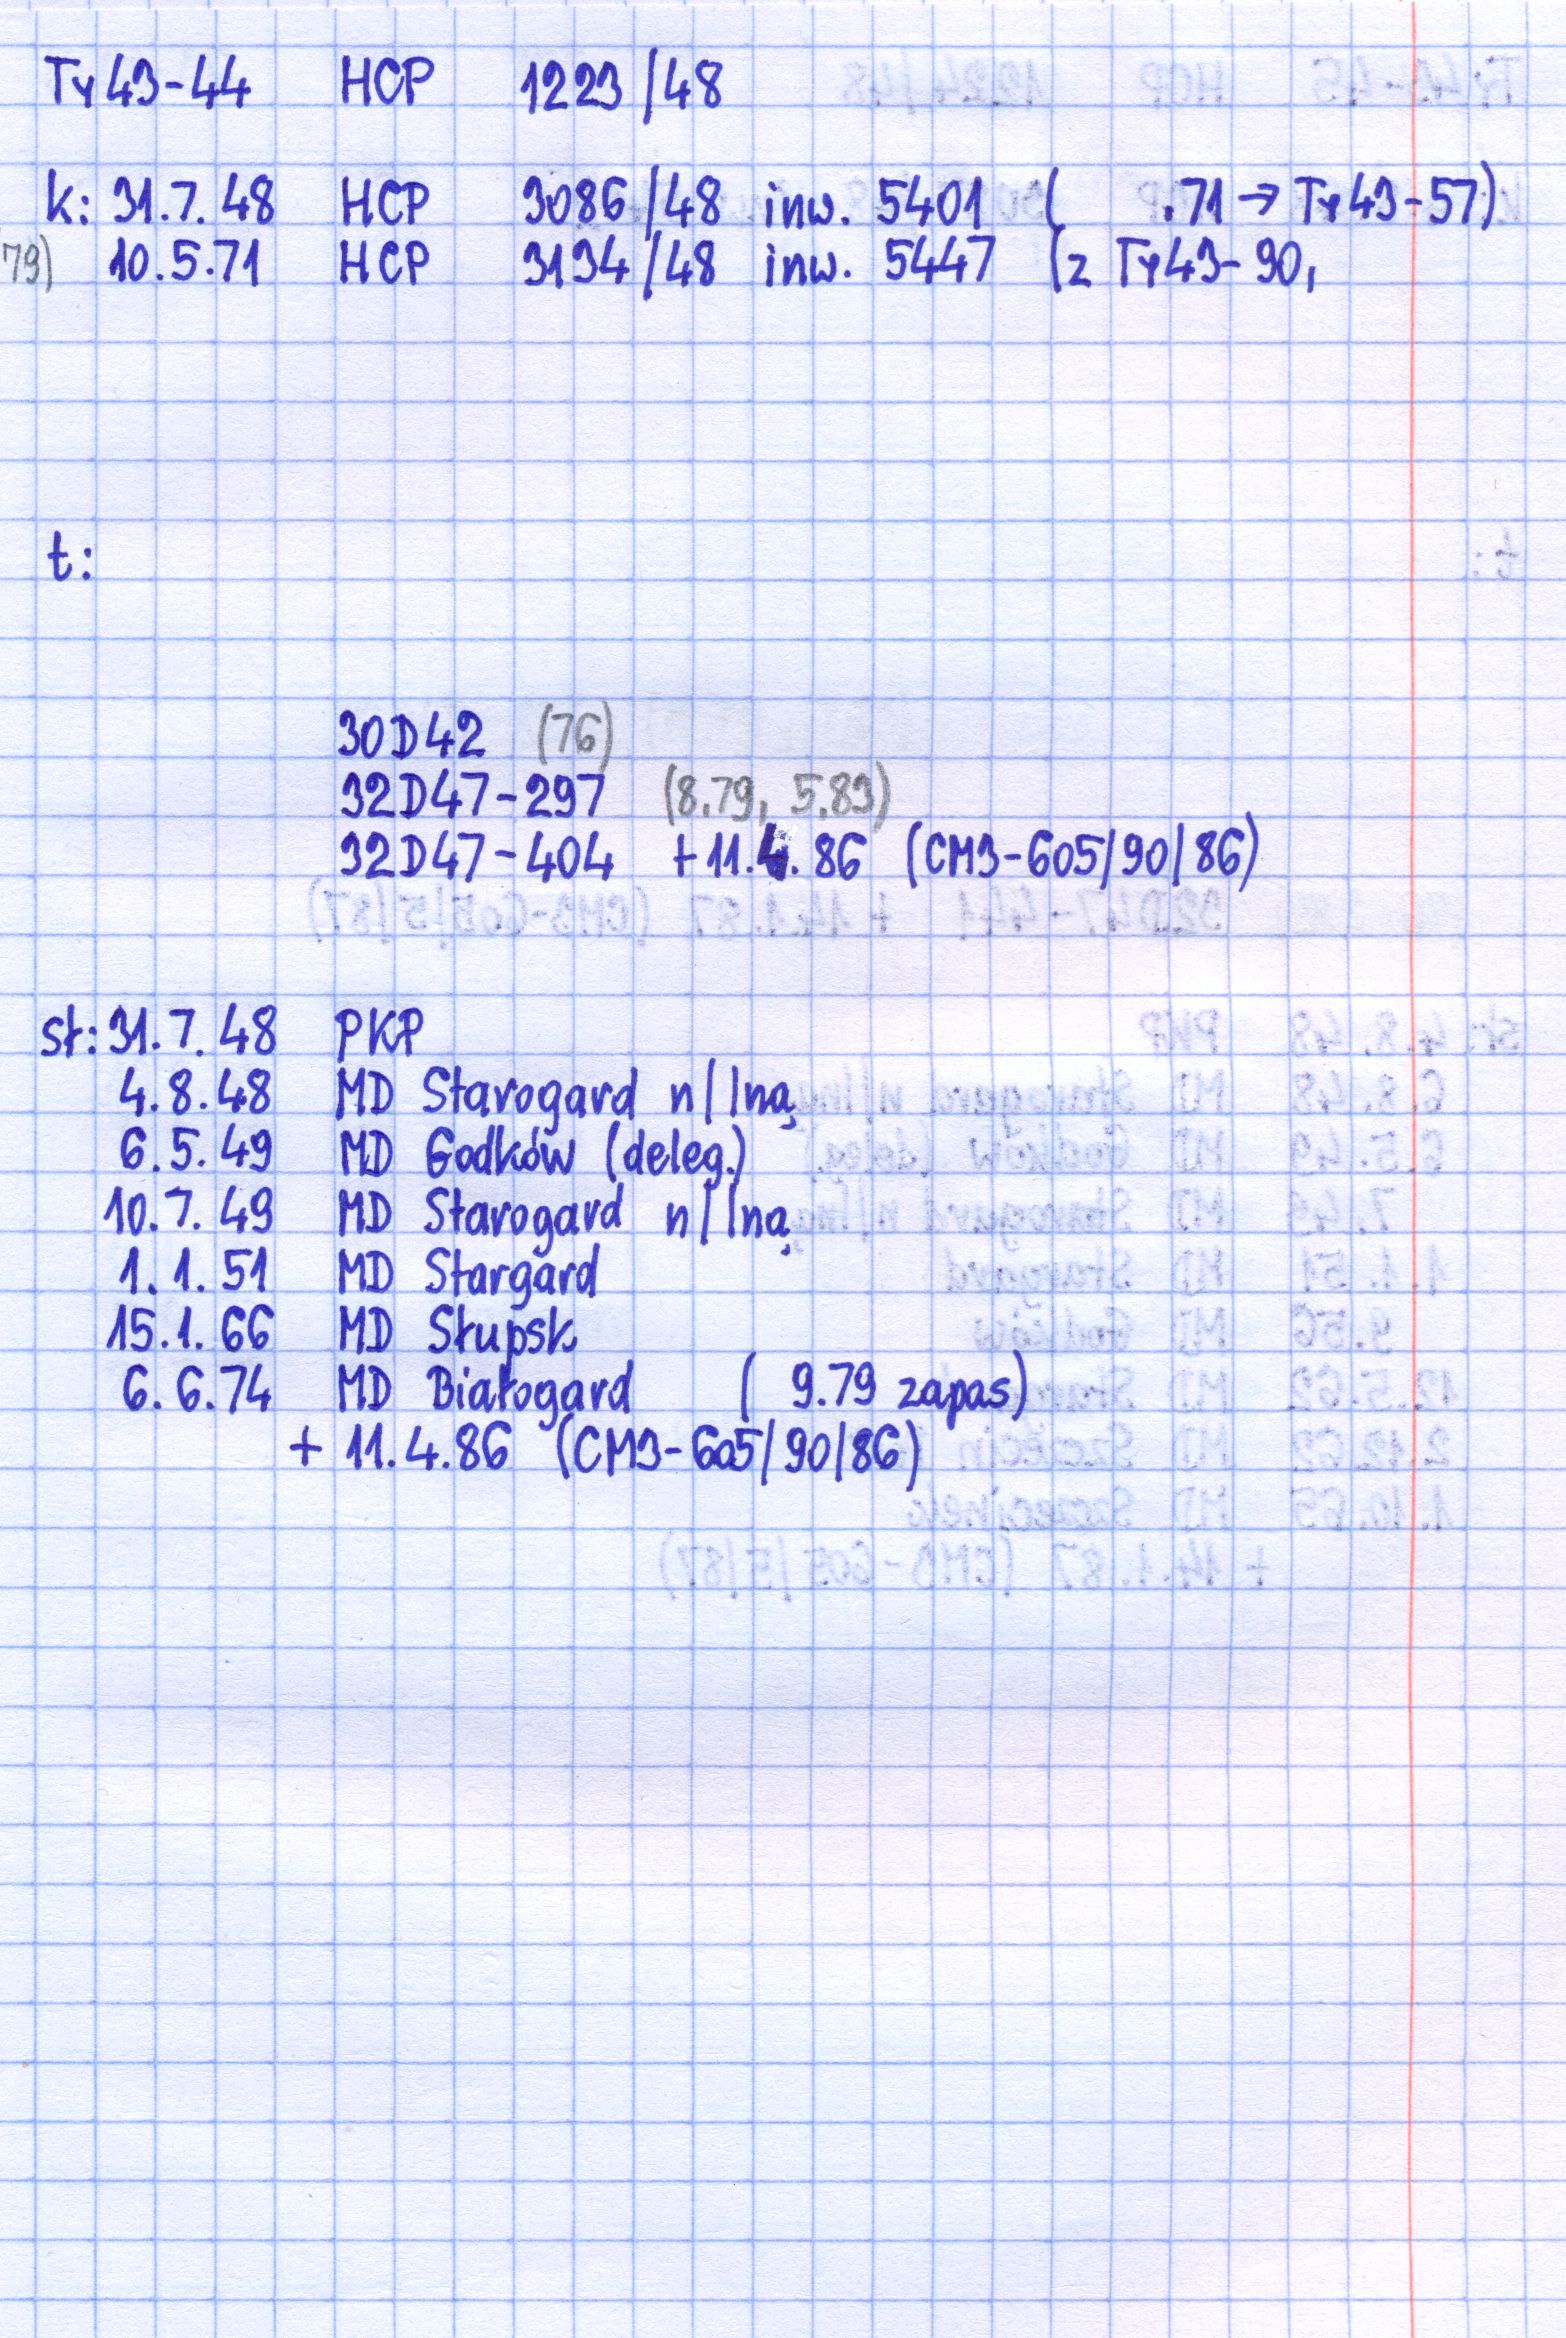 Ty43-44 HCP 1223/48
k: 31.7.48 HCP 3086/48 inw. 5401 ( .71 → Ty43-57)
79) 10.5.71 HCP 3134/48 inw. 5447 (z Ty43-90,
t:
30D42 (76)
32D47-297 (8.79, 5.83)
32D47-404 +11.4.86 (CM3-605/90/86)
st: 31.7.48 PKP
4.8.48 MD Starogard n/Iną
6.5.49 MD Godków (deleg.)
10.7.49 MD Starogard n/Iną
1.1.51 MD Stargard
15.1.66 MD Słupsk
6.6.74 MD Białogard ( 9.79 zapas)
+ 11.4.86 (CM3-605/90/86)